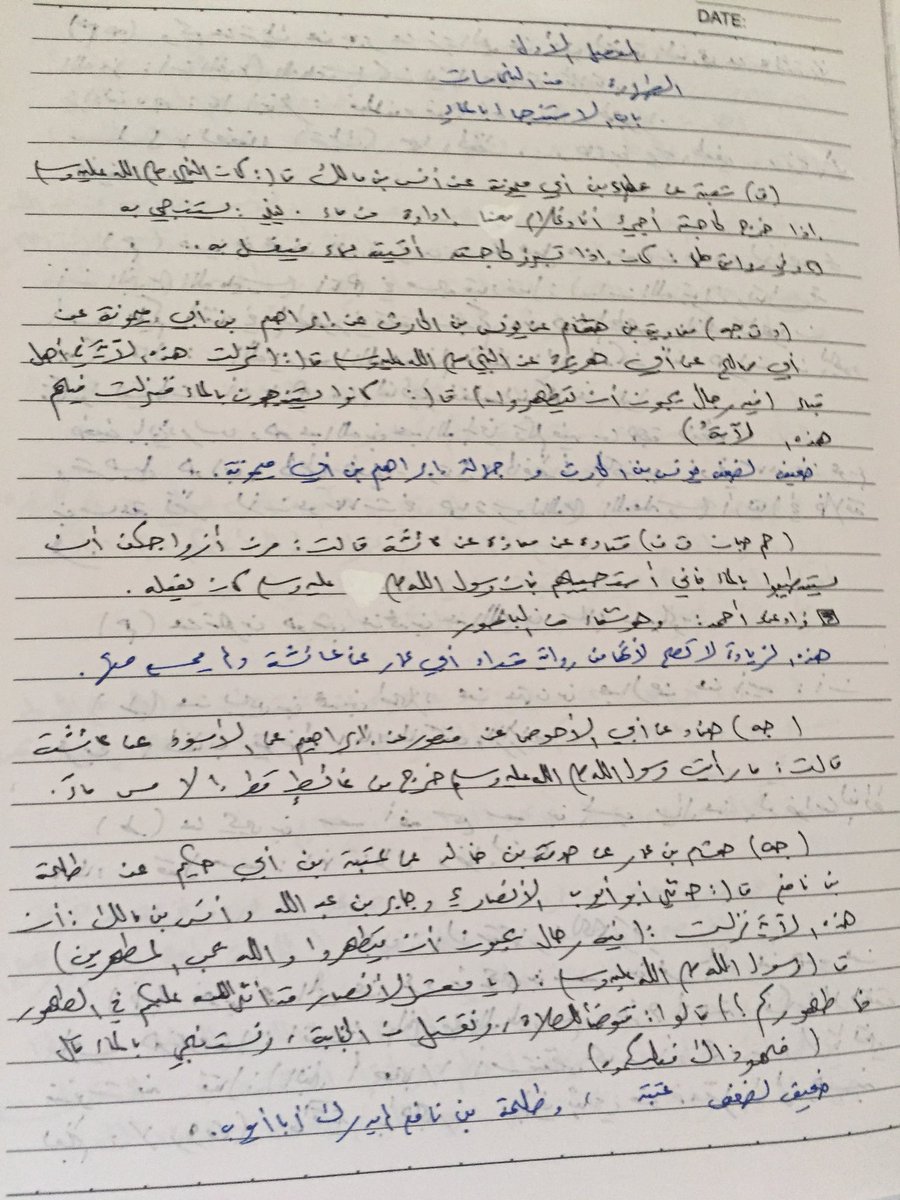 DATE:
الفصل الأول
الطهارة من النجاسات
باب الاستنجاء بالماء
(ق) شعبة عن عطاء بن أبي ميمونة عن أنس بن مالك قال: كان النبي صلى الله عليه وسلم
إذا خرج لحاجته أجيء أنا وغلام معنا إداوة من ماء. يعني: يستنجي به
وفي رواية: كان إذا تبرز لحاجته أتيته بماء فيغسل به.
(د ت جه) معاوية بن هشام عن يونس بن الحارث عن إبراهيم بن أبي ميمونة عن
أبي صالح عن أبي هريرة عن النبي صلى الله عليه وسلم قال: (نزلت هذه الآية في أهل
قباء (فيه رجال يحبون أن يتطهروا) قال: كانوا يستنجون بالماء فنزلت فيهم
هذه الآية)
ضعيف لضعف يونس بن الحارث و جهالة إبراهيم بن أبي ميمونة.
(حم حبان ت ن) قتادة عن معاذة عن عائشة قالت: مرن أزواجكن أن
يستطيبوا بالماء فإني أستحييهم فإن رسول الله صلى الله عليه وسلم كان يفعله.
زاد أحمد: وهو شفاء من الباسور
هذه الزيادة لا تصح لأنها من رواية شداد أبي عمار عن عائشة ولم يسمع منها.
(جه) هناد عن أبي الأحوص عن منصور عن إبراهيم عن الأسود عن عائشة
قالت: ما رأيت رسول الله صلى الله عليه وسلم خرج من غائط قط إلا مس ماء.
(جه) هشام بن عمار عن صدقة بن خالد عن عتبة بن أبي حكيم عن طلحة
بن نافع قال: حدثني أبو أيوب الأنصاري وجابر بن عبد الله وأنس بن مالك: أن
هذه الآية نزلت: (فيه رجال يحبون أن يتطهروا والله يحب المطهرين)
قال رسول الله صلى الله عليه وسلم: (يا معشر الأنصار قد أثنى الله عليكم في الطهور
فما طهوركم؟) قالوا: نتوضأ للصلاة، ونغتسل من الجنابة، ونستنجي بالماء قال
(فهو ذاك فعليكموه)
ضعيف لضعف عتبة، وطلحة بن نافع لم يدرك أبا أيوب.